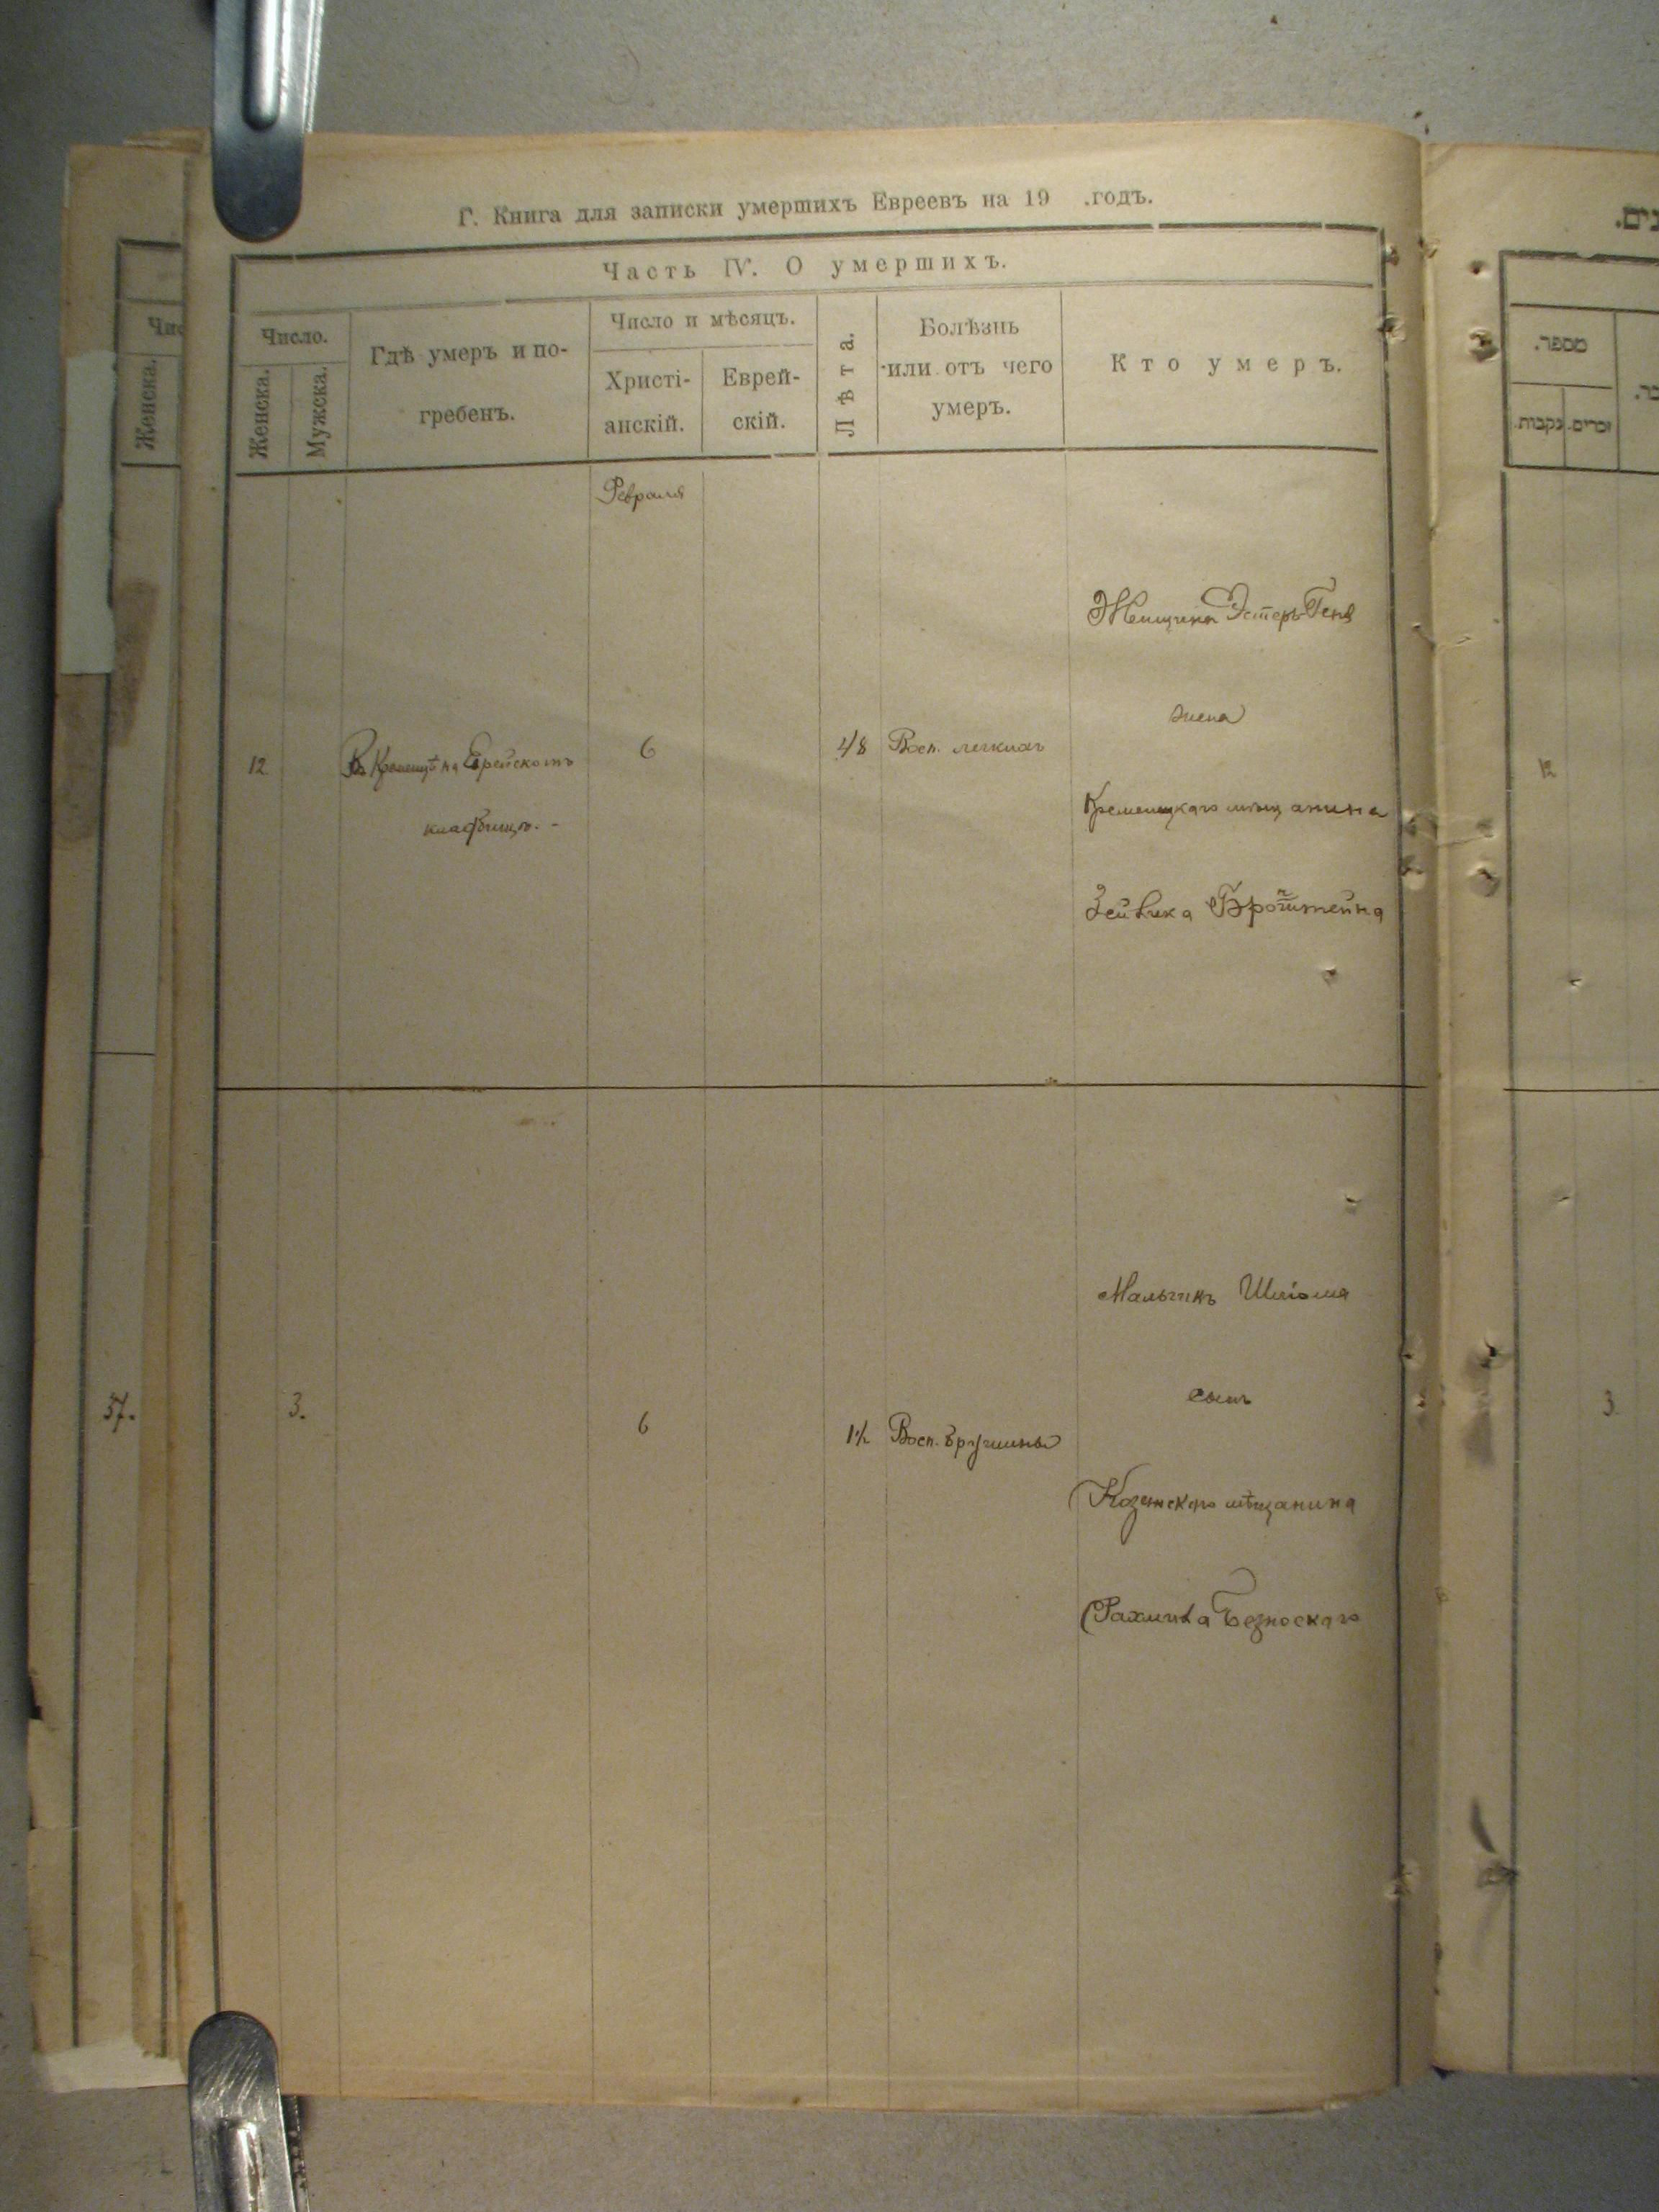 Г. Книга для записки умершихъ Евреевъ на 19 .годъ.
Часть IV. О умершихъ.
Число.
Женска.
Мужска.
Гдѣ умеръ и по-
гребенъ.
Число и мѣсяцъ.
Христі-
анскій.
Еврей-
скій.
Лѣта.
Болѣзнь
или отъ чего
умеръ.
Кто умеръ.
Февраля
Женщина Эстеръ-Геня
жена
12 Въ Кременцѣ на Еврейскомъ 6 48 Восп. легкихъ
кладбищѣ. -
Кременецкаго мѣщанина
Зейвика
Мальчикъ Шліома
сынъ
3. 6 1½ Восп. брушины
мѣщанина
Безноскаго
Чис
Женска.
37.
נים.
מספר.
נקבות.
זכרים.
12
3